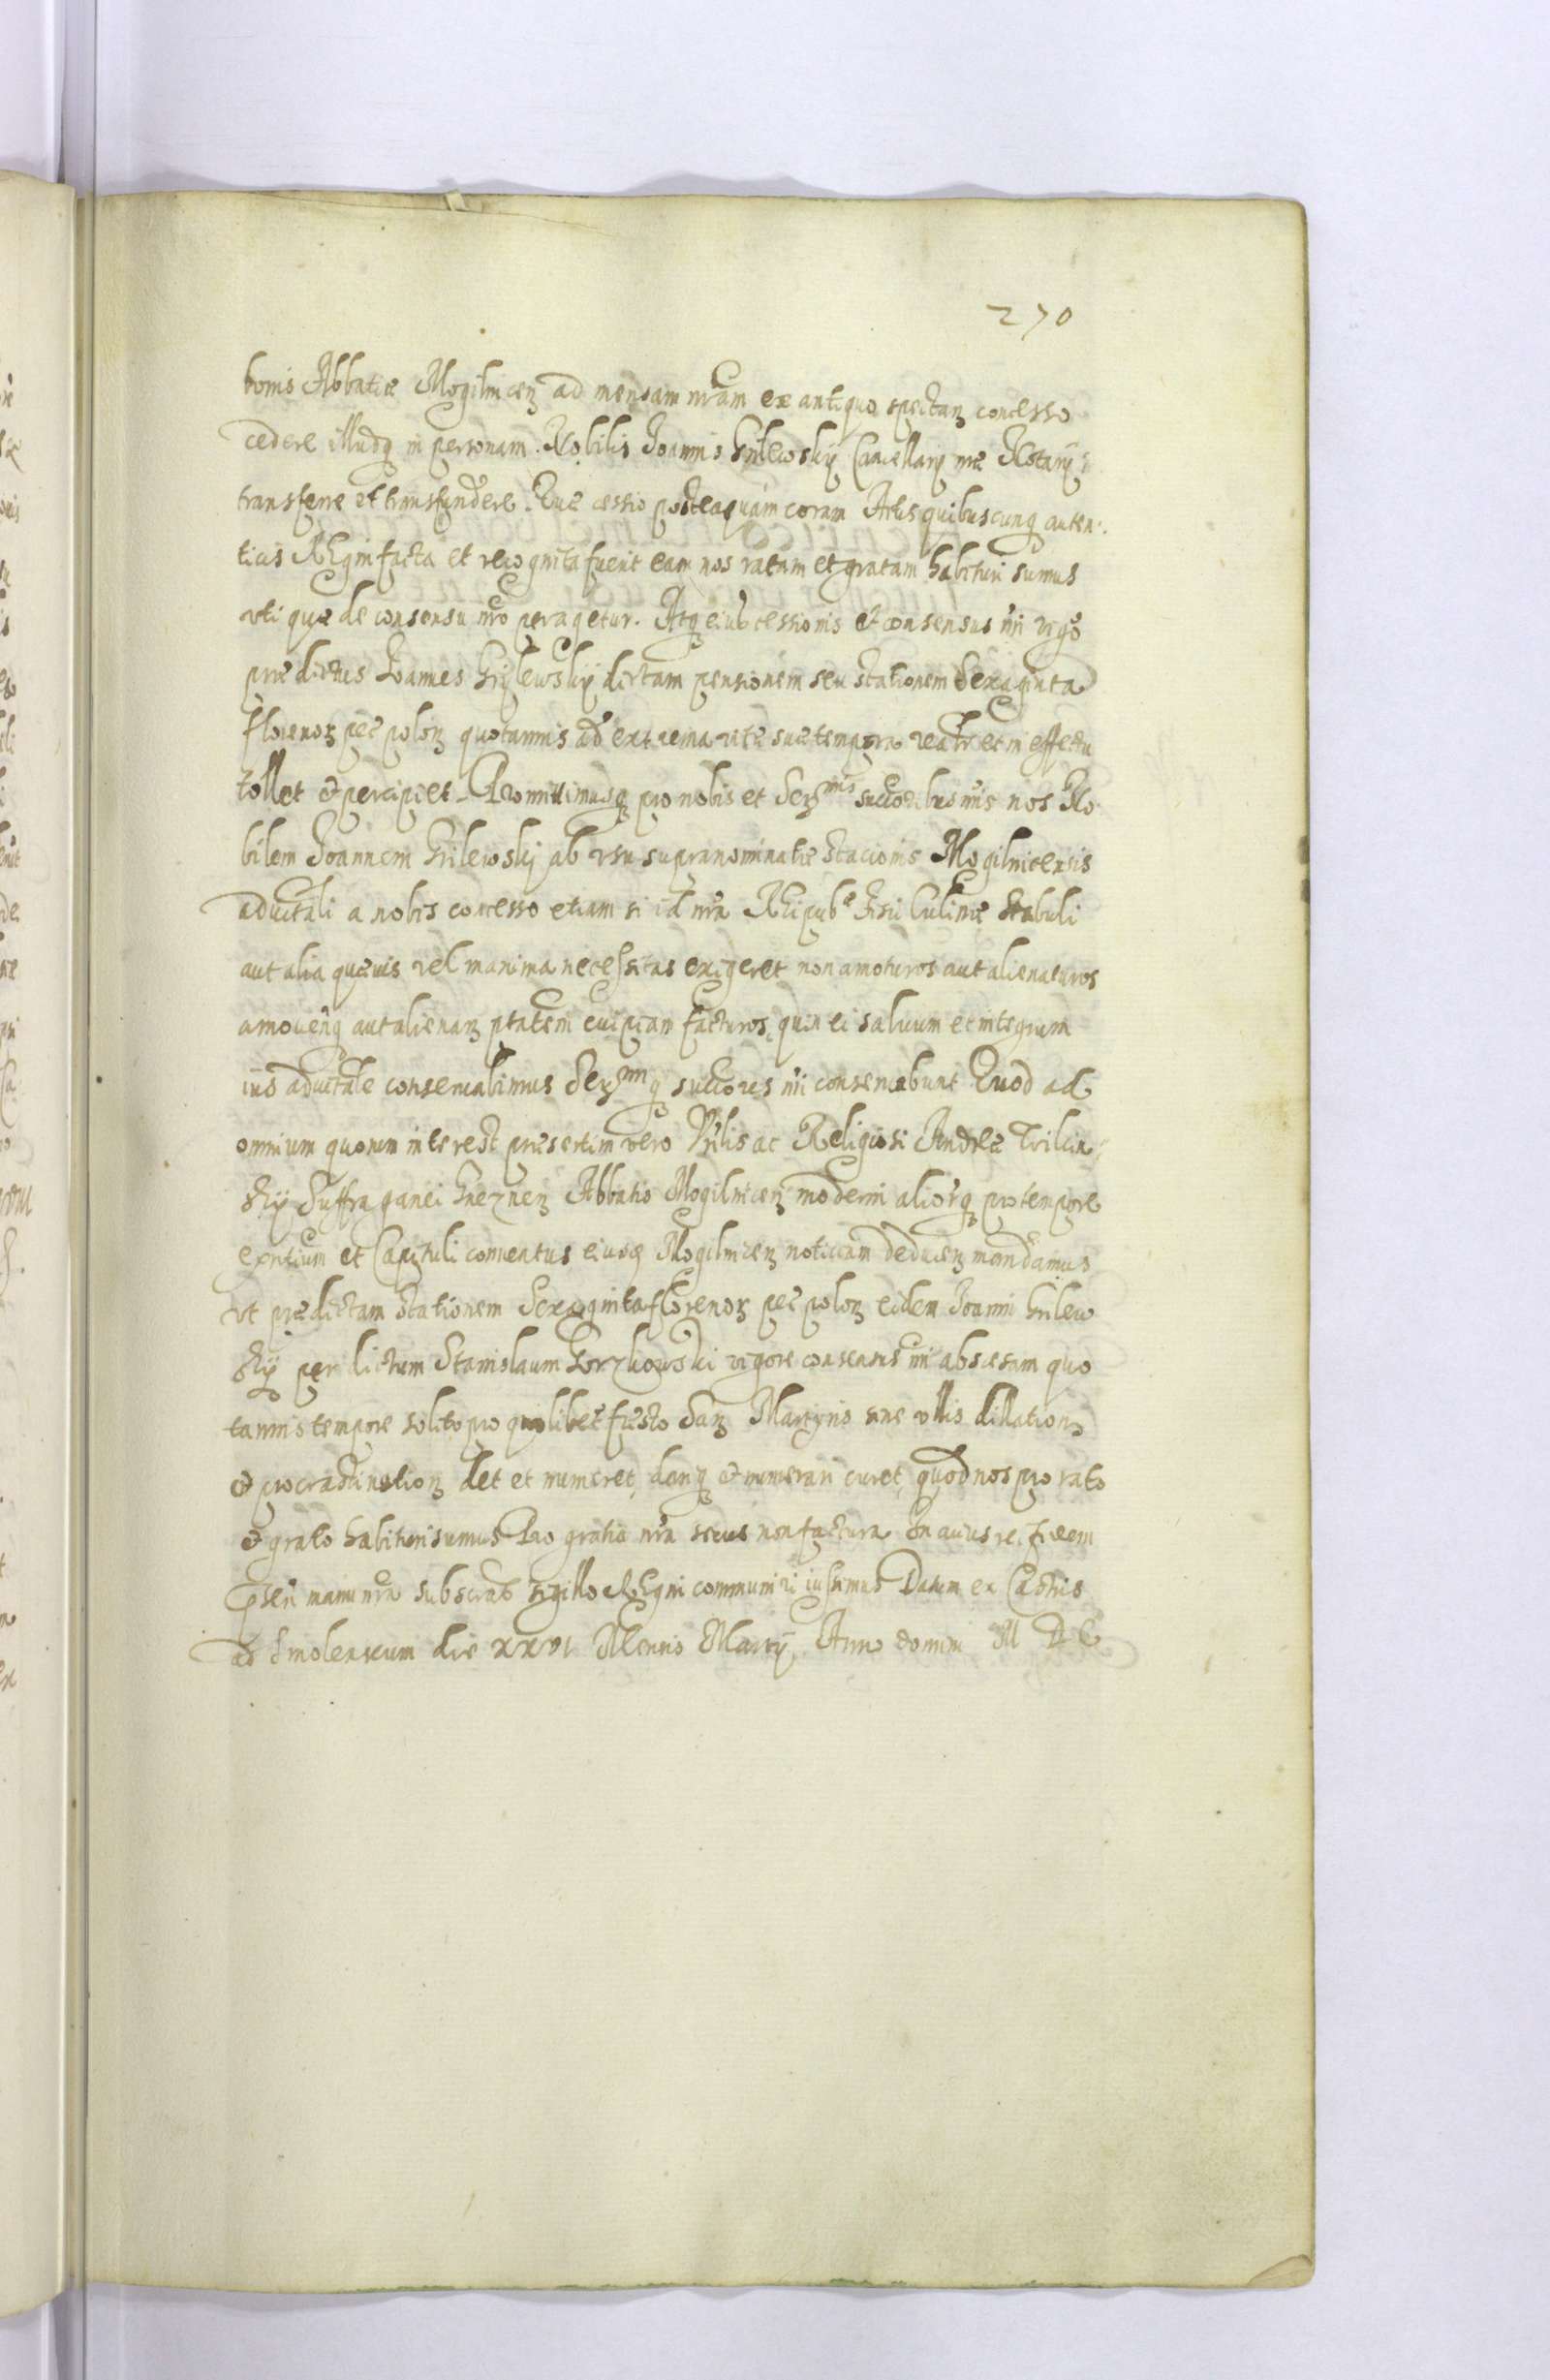 270
bonis Abbatiæ Mogilnicen ad mensam nram ex antiquo spectan concesso
cedere illudq in personam Nobilis Joannis Grilewskij Cancellariæ nræ Notarij
transferre et transfundere. Quæ cessio posteaquam coram Actis quibuscunq auten:
ticis Regni facta et recognita fuerit eam nos ratam et gratam habituri sumus
uti quæ de consensu nro peragetur. Atq eius cessionis et consensus nri vigore
prædictus Joannes Grijlewskij dictam pensionem seu stationem Sexaginta
florenor pec polon quotannis ad extrema vitæ suæ tempora realr et in effectu
tollet et percipiet. Promittimusq pro nobis et Sermis succoribus nris nos No
bilem Joannem Grilewskj ab usu supranominatæ stacionis Mogilnicensis
advitali a nobis concesso etiam si id nra Reipubcæ Fisci Culinæ Stabuli
aut alia quævis vel maxima necessitas exigeret non amoturos aut alienaturos
amovendiq aut alienan ptatem cuipiam facturos, quin ei salvum et integrum
ius advitale conservabimus Sermiq succores nri conservabunt Quod ad
omnium quorum interest præsertim vero Vrilis ac Religiosi Andreæ
skij Suffraganei Gneznen Abbatis Mogilnicen moderni aliorq pro tempore
exntium et Capituli conventus eiusdem Mogilnicen noticiam deducen mandamus
ut prædictam stationem Sexaginta florenor pec polon eidem Joanni Grilew
skij per dictum Stanislaum Gorzkowski vigore consensus nri abscesam quo
tannis tempore solito pro quolibet festo San Martini sine ullis dillation
et procrastination det et numeret, danq et numerari curet, quod nos pro rato
et grato habituri sumus Pro gratia nra secus non factura In cuius re fidem
psen manu nra subscrat sigillo Regni communiri iussimus Datum ex Castris
ad Smolenscum die XXVI Mensis Martij Anno domini M D C